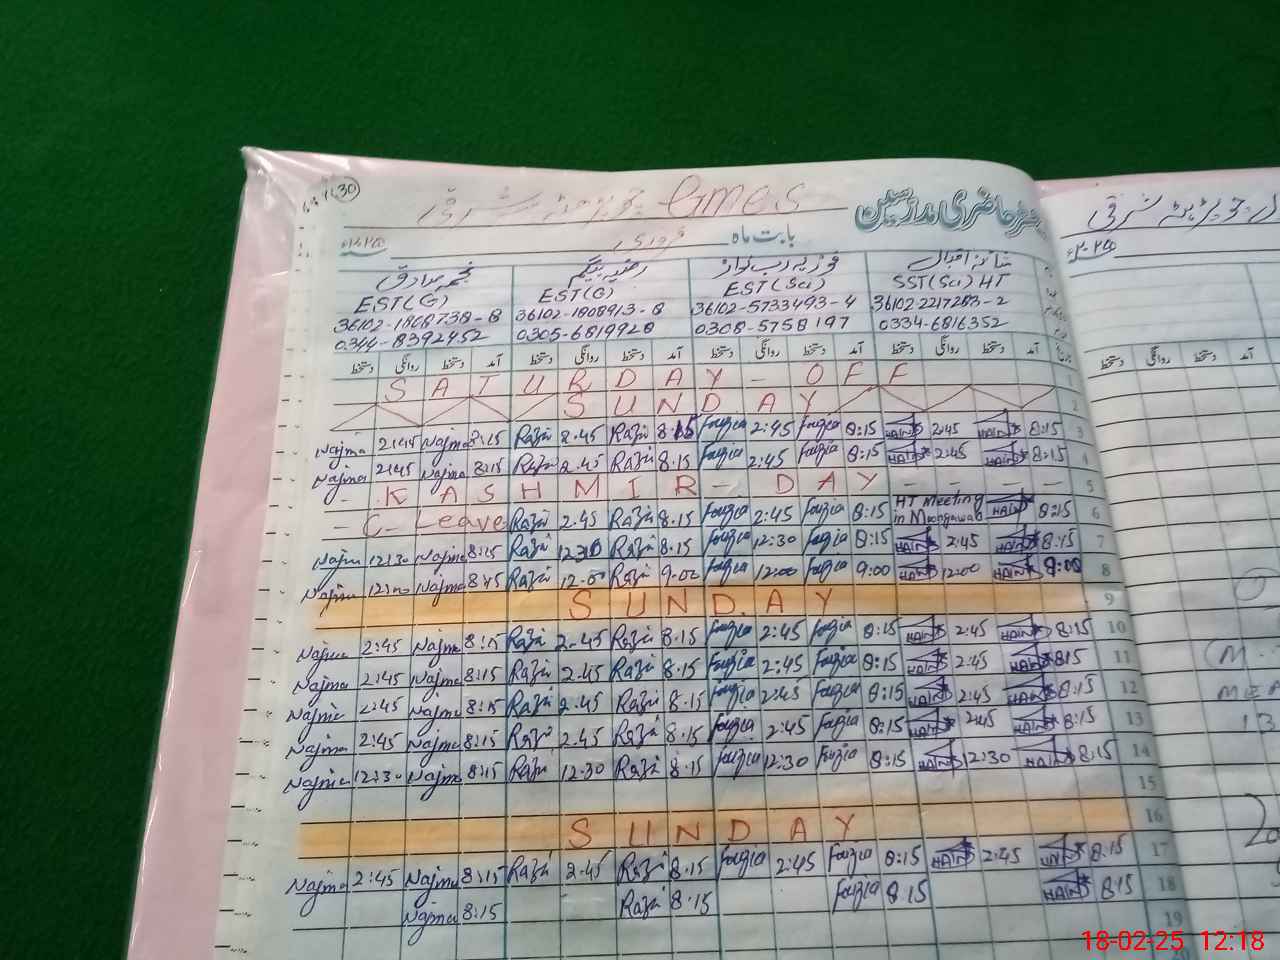 30
Gmes رجسٹر حاضری مدرسین
بابت ماہ فروری ۲۰۲۵ء
نجمہ صادق رضیہ بیگم فوزیہ رب نواز شائستہ اقبال
EST(G) EST(G) EST(Sci) SST(Sci) HT
36102-1808738-8 36102-1808913-8 36102-5733493-4 36102-2217283-2
0344-8392452 0305-6819928 0308-5758197 0334-6816352
دستخط روانگی دستخط آمد دستخط روانگی دستخط آمد دستخط روانگی دستخط آمد دستخط روانگی دستخط آمد
SATURDAY - OFF 1
SUNDAY 2
Najma 2:45 Najma 8:15 Razia 2.45 Razia 8.15 Fouzia 2:45 Fouzia 8:15 2:45 8:15 3
Najma 2:45 Najma 8:15 Razia 2.45 Razia 8.15 Fouzia 2:45 Fouzia 8:15 2:45 8:15 4
- KASHMIR - DAY - - - - 5
- C - Leave Razia 2.45 Razia 8.15 Fouzia 2:45 Fouzia 8:15 HT Meeting in 8:15 6
Najma 12:30 Najma 8:15 Razia 12.30 Razia 8.15 Fouzia 12:30 Fouzia 8:15 2:45 8:15 7
Najma 12:00 Najma 8:45 Razia 12.00 Razia 9.00 Fouzia 12:00 Fouzia 9:00 12:00 9:00 8
SUNDAY 9
Najma 2:45 Najma 8:15 Razia 2.45 Razia 8.15 Fouzia 2:45 Fouzia 8:15 2:45 8:15 10
Najma 2:45 Najma 8:15 Razia 2.45 Razia 8.15 Fouzia 2:45 Fouzia 8:15 2:45 8:15 11
Najma 2:45 Najma 8:15 Razia 2.45 Razia 8.15 Fouzia 2:45 Fouzia 8:15 2:45 8:15 12
Najma 2:45 Najma 8:15 Razia 2.45 Razia 8.15 Fouzia 2:45 Fouzia 8:15 2:45 8:15 13
Najma 12:30 Najma 8:15 Razia 12.30 Razia 8.15 Fouzia 12:30 Fouzia 8:15 12:30 8:15 14
15
SUNDAY 16
Najma 2:45 Najma 8:15 Razia 2.45 Razia 8.15 Fouzia 2:45 Fouzia 8:15 2:45 8:15 17
Najma 8:15 Razia 8.15 Fouzia 8:15 8:15 18
19
20
۲۰۲۵ء
دستخط روانگی دستخط آمد
18-02-25 12:18